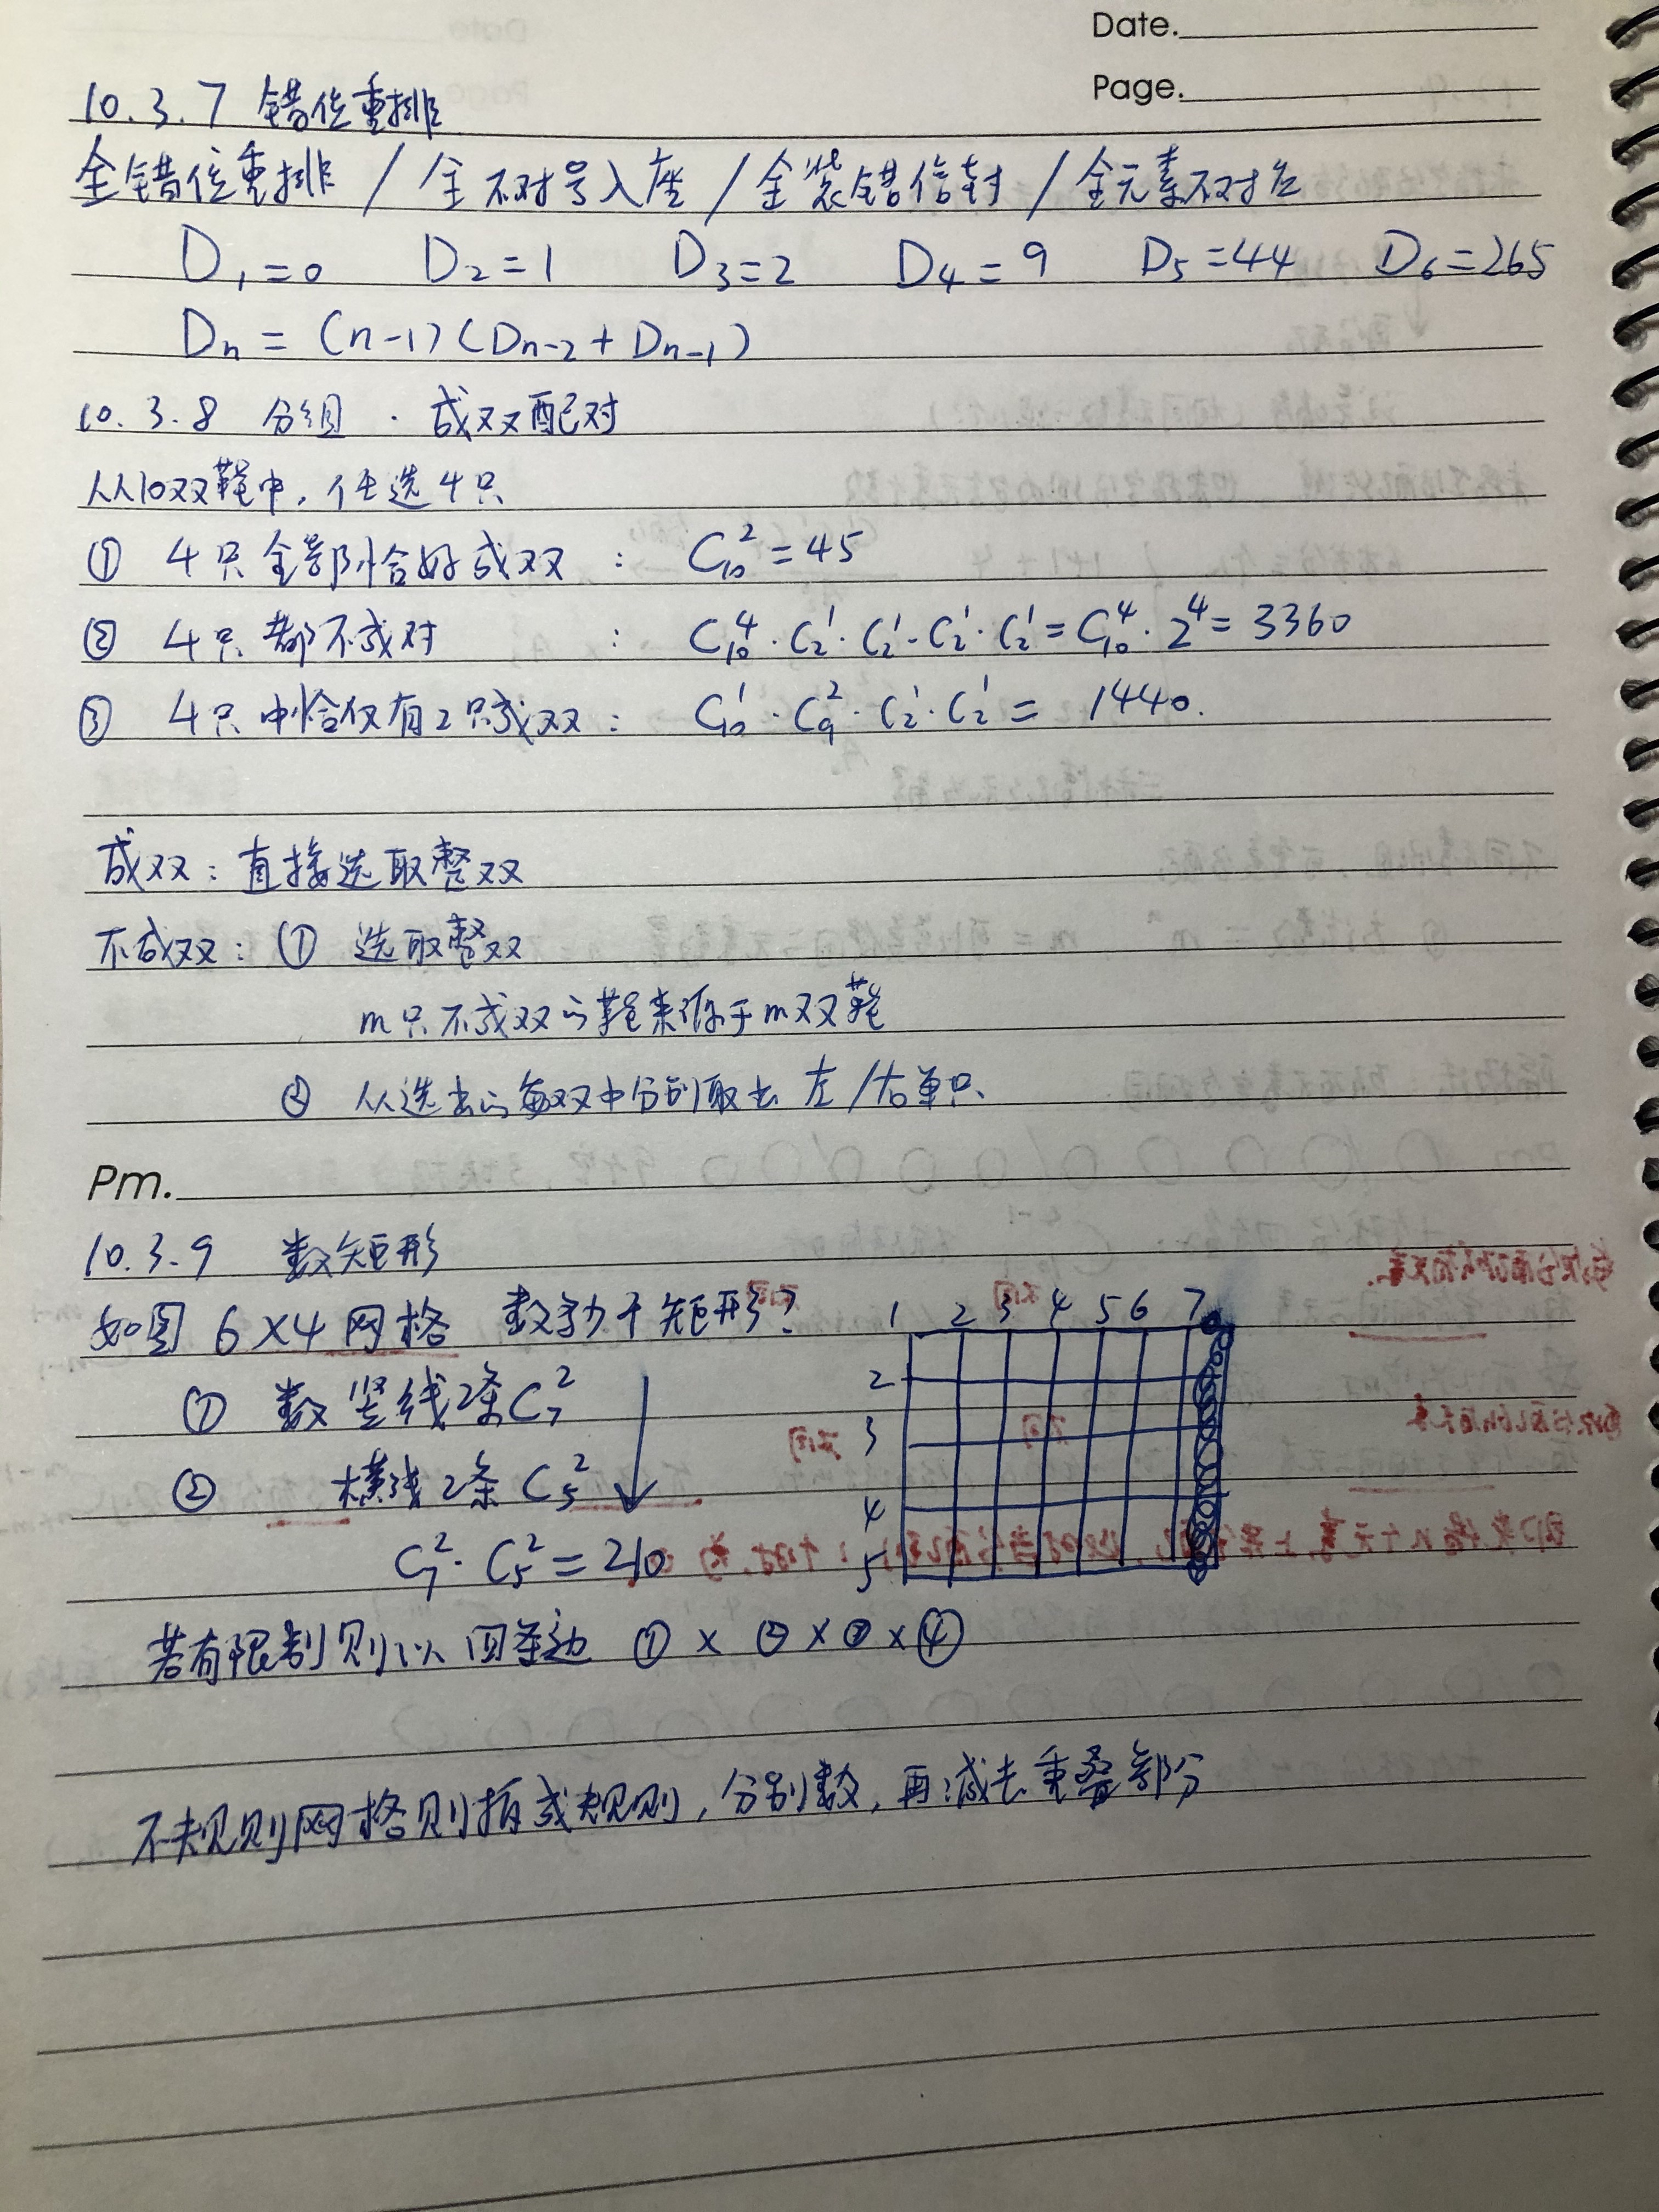 Date.
Page.
10.3.7 错位重排
全错位重排 / 全不对号入座 / 全装错信封 / 全元素不对应
D₁=0 D₂=1 D₃=2 D₄=9 D₅=44 D₆=265
Dn = (n-1)(Dn-2 + Dn-1)
10.3.8 分组 · 成双配对
从10双鞋中, 任选4只
① 4只全部恰好成双 : C₁₀² = 45
② 4只都不成对 : C₁₀⁴ · C₂¹ · C₂¹ · C₂¹ · C₂¹ = C₁₀⁴ · 2⁴ = 3360
③ 4只中恰仅有2只成双 : C₁₀¹ · C₉² · C₂¹ · C₂¹ = 1440.
成双 : 直接选取整双
不成双 : ① 选取整双
m只不成双的鞋来源于m双鞋
② 从选出的每双中分别取出 左/右单只.
Pm.
10.3.9 数矩形
如图 6×4 网格 数多少个矩形?
1 2 3 4 5 6 7
① 数竖线2条 C₇²
2
3
② 横线2条 C₅²
4
C₇² · C₅² = 210
5
若有限制则以四条边 ① × ② × ③ × ④
不规则网格则拆成规则, 分别数, 再减去重叠部分